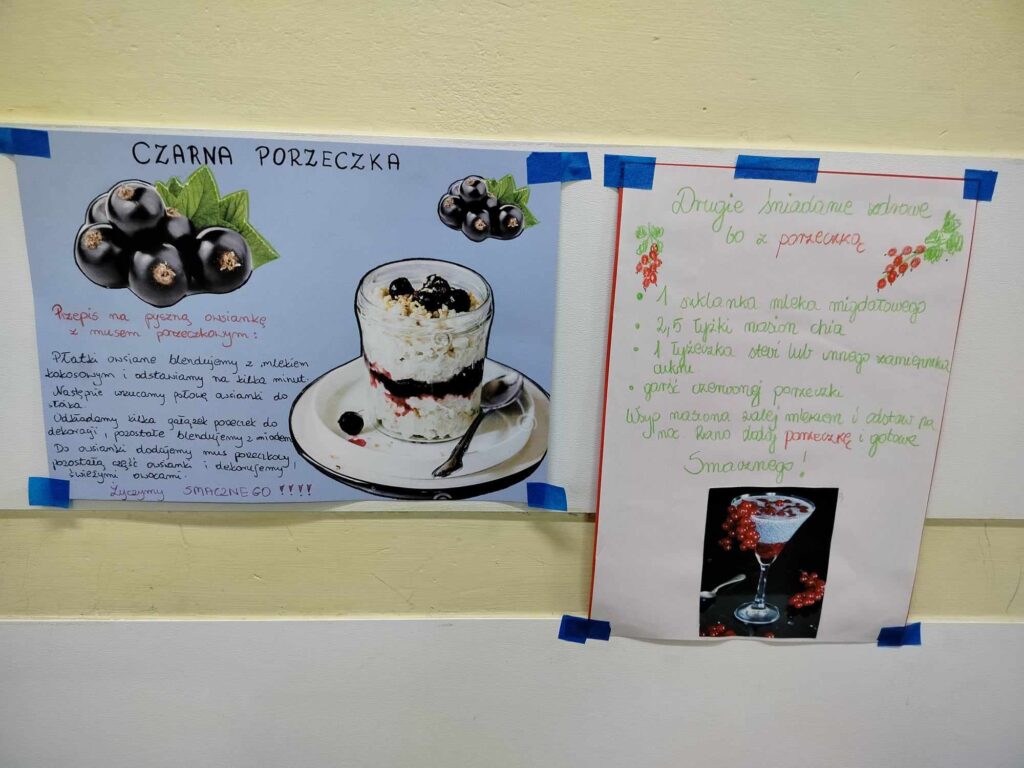 CZARNA PORZECZKA
Przepis na pyszną owsiankę
z musem porzeczkowym:
Płatki owsiane blendujemy z mlekiem
kokosowym i odstawiamy na kilka minut.
Następnie wrzucamy połowę owsianki do
słoika.
Odkładamy kilka gałązek porzeczek do
dekoracji, pozostałe blendujemy z miodem
Do owsianki dodajemy mus porzeczkowy
pozostałą część owsianki i dekorujemy!
świeżymi owocami.
Życzymy SMACZNEGO !!!!
Drugie śniadanie zdrowe
bo z porzeczką
• 1 szklanka mleka migdałowego
• 2,5 łyżki nasion chia
• 1 łyżeczka stevi lub innego zamiennika
cukru
• garść czerwonej porzeczki
Wsyp nasiona zalej mlekiem i odstaw na
noc. Rano dodaj porzeczkę i gotowe
Smacznego!